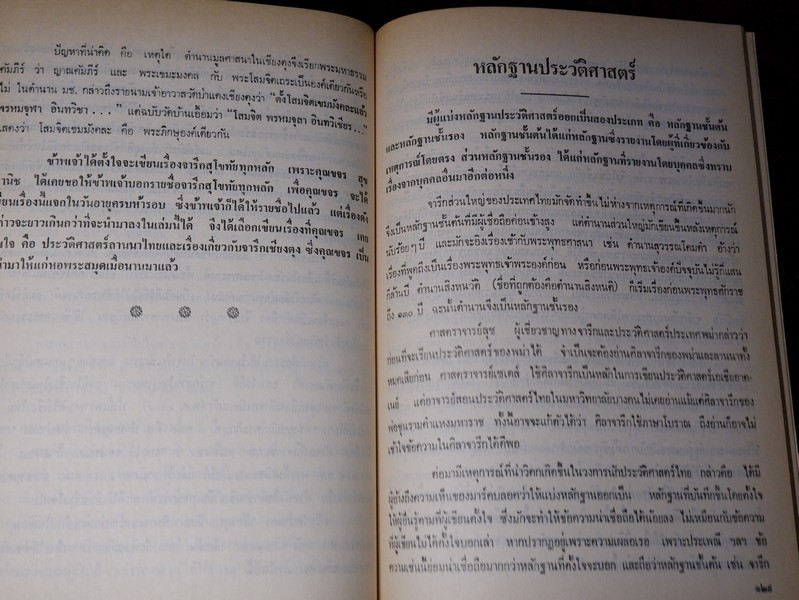 ปัญหาที่น่าคิด คือ เหตุใด ตำนานมูลศาสนาในเชียงตุงจึงเรียกพระมหาธรรม
คัมภีร์ ว่า ญาณคัมภีร์ และ พระเขมะมงคล กับ พระโสมจิตเถระเป็นองค์เดียวกันหรือ
ไม่ ในตำนาน มช. กล่าวถึงรายนามเจ้าอาวาสวัดป่าแดงเชียงตุงว่า "ตั้งโสมจิตเขมมังคละแล้ว
พรหมจุฬา อินทวิชา . . ." แต่ฉบับวัดบ้านเอื้อมว่า "โสมจิต พรหมจุลา อินทวิเชียร..."
แสดงว่า โสมจิตเขมมังคละ คือ พระภิกษุองค์เดียวกัน
ข้าพเจ้าได้ตั้งใจจะเขียนเรื่องจารึกสุโขทัยทุกหลัก เพราะคุณขจร สุข
พานิช ได้เคยขอให้ข้าพเจ้าบอกรายชื่อจารึกสุโขทัยทุกหลัก เพื่อคุณขจร จะได้
เขียนเรื่องนี้แจกในวันอายุครบห้ารอบ ซึ่งข้าพเจ้าก็ได้ให้รายชื่อไปแล้ว แต่เรื่องดัง
กล่าวจะยาวเกินกว่าที่จะนำมาลงในเล่มนี้ได้ จึงได้เลือกเขียนเรื่องที่คุณขจร เคย
สนใจ คือ ประวัติศาสตร์ลานนาไทยและเรื่องเกี่ยวกับจารึกเชียงตุง ซึ่งคุณขจร เป็น
นำมาให้แก่หอพระสมุดเมื่อนานมาแล้ว
หลักฐานประวัติศาสตร์
มีผู้แบ่งหลักฐานประวัติศาสตร์ออกเป็นสองประเภท คือ หลักฐานชั้นต้น
และหลักฐานชั้นรอง หลักฐานชั้นต้นได้แก่หลักฐานซึ่งรายงานโดยผู้ที่เกี่ยวข้องกับ
เหตุการณ์โดยตรง ส่วนหลักฐานชั้นรอง ได้แก่หลักฐานที่รายงานโดยบุคคลซึ่งทราบ
เรื่องจากบุคคลอื่นมาอีกต่อหนึ่ง
จารึกส่วนใหญ่ของประเทศไทยมักจัดทำขึ้นไม่ห่างจากเหตุการณ์ที่เกิดขึ้นมากนัก
จึงเป็นหลักฐานชั้นต้นที่มีผู้เชื่อถือค่อนข้างสูง แต่ตำนานส่วนใหญ่มักเขียนขึ้นหลังเหตุการณ์
นับร้อยๆ ปี และมักจะอิงเรื่องเข้ากับพระพุทธศาสนา เช่น ตำนานสุวรรณโคมคำ อ้างว่า
เรื่องที่พูดถึงเป็นเรื่องพระพุทธเจ้าพระองค์ก่อน หรือก่อนพระพุทธเจ้าองค์ปัจจุบันไม่รู้กี่แสน
กี่ล้านปี ตำนานสิงหนวัติ (ชื่อที่ถูกต้องคือตำนานสิงหนติ) ก็เริ่มเรื่องก่อนพระพุทธศักราช
ถึง ๑๓๐ ปี ฉะนั้นตำนานจึงเป็นหลักฐานชั้นรอง
ศาสตราจารย์ลุช ผู้เชี่ยวชาญทางจารึกและประวัติศาสตร์ประเทศพม่ากล่าวว่า
ก่อนที่จะเรียนประวัติศาสตร์ของพม่าได้ จำเป็นจะต้องอ่านศิลาจารึกของพม่าและลานนาทั้ง
หมดเสียก่อน ศาสตราจารย์เซเดส์ ใช้ศิลาจารึกเป็นหลักในการเขียนประวัติศาสตร์เอเชียอาค-
เนย์ แต่อาจารย์สอนประวัติศาสตร์ไทยในมหาวิทยาลัยบางคนไม่เคยอ่านแม้แต่ศิลาจารึกของ
พ่อขุนรามคำแหงมหาราช ทั้งนี้อาจจะแก้ตัวได้ว่า ศิลาจารึกใช้ภาษาโบราณ ถึงอ่านก็อาจไม่
เข้าใจข้อความในศิลาจารึกได้ดีพอ
ต่อมามีเหตุการณ์ที่น่าวิตกเกิดขึ้นในวงการนักประวัติศาสตร์ไทย กล่าวคือ ได้มี
ผู้อ้างถึงความเห็นของมาร์คบลอควว่าให้แบ่งหลักฐานออกเป็น หลักฐานที่บันทึกขึ้นโดยตั้งใจ
ให้ผู้อื่นรู้ตามที่ผู้เขียนตั้งใจ ซึ่งมักจะทำให้ข้อความน่าเชื่อถือได้น้อยลง ไม่เหมือนกับข้อความ
ที่ผู้เขียนไม่ได้ตั้งใจบอกเล่า หากปรากฏอยู่เพราะความเผลอเรอ เพราะประเพณี ฯลฯ ข้อ
ความเช่นนี้ย่อมน่าเชื่อถือมากกว่าหลักฐานที่ตั้งใจจะบอก และถือว่าหลักฐานชั้นต้น เช่น จารึก
๑๒๙